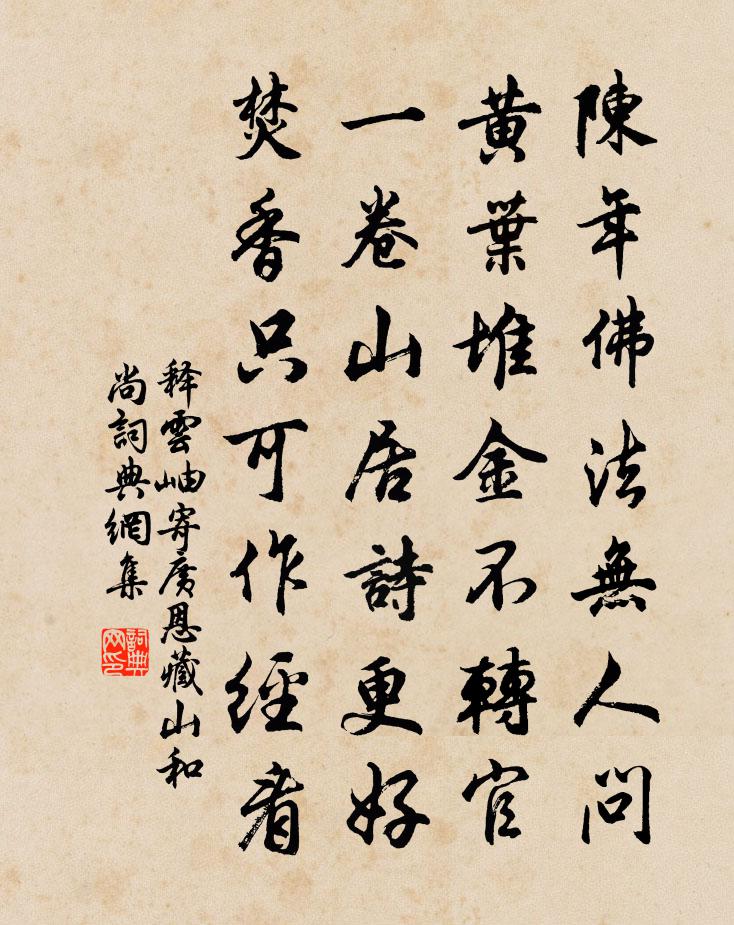 陳年佛法無人問
黃葉堆金不轉官
一卷山居詩更好
焚香只可作經看
释雲岫寄廣恩藏山和
尚詞典網集
詞典
网印